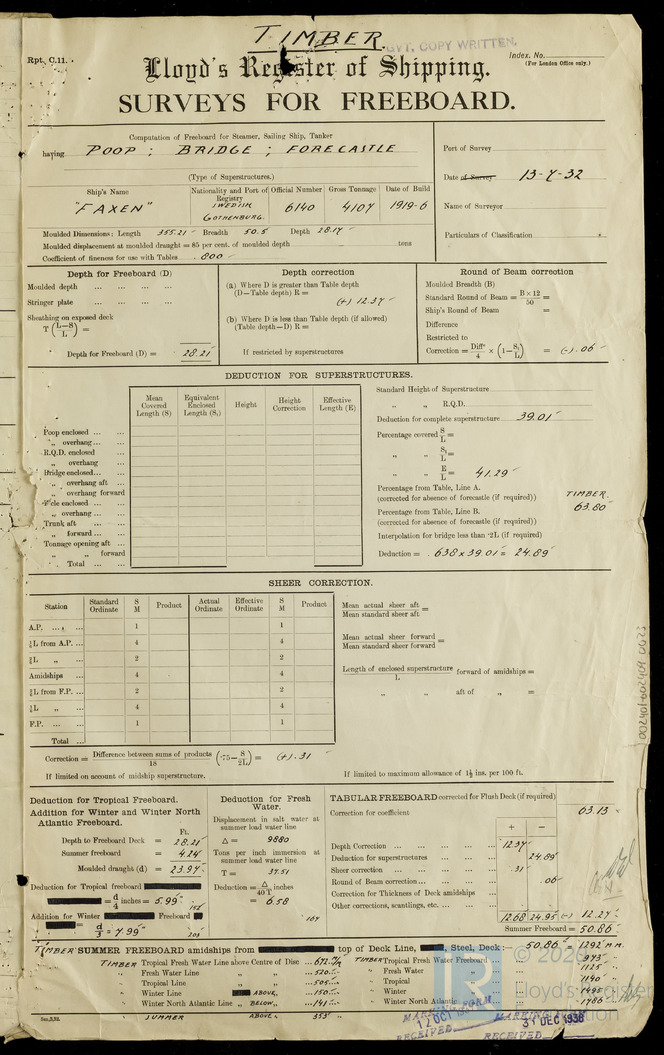 TIMBER
GVT. COPY WRITTEN.
Rpt. C.11.
Index. No.
(For London Office only.)
Lloyd's Register of Shipping.
SURVEYS FOR FREEBOARD.
Computation of Freeboard for Steamer, Sailing Ship, Tanker
having POOP ; BRIDGE ; FORECASTLE
(Type of Superstructures.)
Port of Survey
Date of Survey 13-7-32
Name of Surveyor
Particulars of Classification
Ship's Name
Nationality and Port of Registry
Official Number
Gross Tonnage
Date of Build
"FAXEN"
SWEDISH
GOTHENBURG.
6140
4107
1919-6
Moulded Dimensions: Length 355.21 Breadth 50.5 Depth 28.17
Moulded displacement at moulded draught = 85 per cent. of moulded depth tons
Coefficient of fineness for use with Tables .800
Depth for Freeboard (D)
Moulded depth ... ... ...
Stringer plate ... ... ...
Sheathing on exposed deck
T (L-S/L) =
Depth for Freeboard (D) = 28.21
Depth correction
(a) Where D is greater than Table depth
(D—Table depth) R =
(+) 12.37
(b) Where D is less than Table depth (if allowed)
(Table depth—D) R =
If restricted by superstructures
Round of Beam correction
Moulded Breadth (B)
Standard Round of Beam = B×12/50 =
Ship's Round of Beam =
Difference
Restricted to
Correction = Diffce/4 × (1−S₁/L) = (-) .06
DEDUCTION FOR SUPERSTRUCTURES.
Mean Covered Length (S)
Equivalent Enclosed Length (S₁)
Height
Height Correction
Effective Length (E)
Poop enclosed ... ...
" overhang ... ...
R.Q.D. enclosed ...
" overhang ...
Bridge enclosed... ...
" overhang aft ...
" overhang forward
F'cle enclosed ... ...
" overhang ... ...
Trunk aft ... ...
" forward ... ...
Tonnage opening aft ...
" " forward
Total ... ...
Standard Height of Superstructure
" " R.Q.D.
Deduction for complete superstructure 39.01
Percentage covered S/L =
" " S₁/L =
" " E/L = 41.29
Percentage from Table, Line A.
(corrected for absence of forecastle (if required))
TIMBER
63.80
Percentage from Table, Line B.
(corrected for absence of forecastle (if required))
Interpolation for bridge less than ·2L (if required)
Deduction = .638 x 39.01 = 24.89
SHEER CORRECTION.
Station
Standard Ordinate
S M
Product
Actual Ordinate
Effective Ordinate
S M
Product
A.P. ... ... 1 1
⅙L from A.P. ... 4 4
⅓L " ... 2 2
Amidships ... 4 4
⅓L from F.P. ... 2 2
⅙L " ... 4 4
F.P. ... ... 1 1
Total ...
Mean actual sheer aft / Mean standard sheer aft =
Mean actual sheer forward / Mean standard sheer forward =
Length of enclosed superstructure / L forward of amidships =
" " aft of " =
Correction = Difference between sums of products / 18 (·75 − S/2L) = (+) .31
If limited on account of midship superstructure.
If limited to maximum allowance of 1½ ins. per 100 ft.
Deduction for Tropical Freeboard.
Addition for Winter and Winter North Atlantic Freeboard.
Ft.
Depth to Freeboard Deck = 28.21
Summer freeboard = 4.24
Moulded draught (d) = 23.97
Deduction for Tropical freeboard
= d/4 inches = 5.99
Addition for Winter Freeboard
= d/3 = 7.99
203
Deduction for Fresh Water.
Displacement in salt water at summer load water line
Δ = 9880
Tons per inch immersion at summer load water line
T = 37.51
Deduction = Δ/40T inches
= 6.58
167
TABULAR FREEBOARD corrected for Flush Deck (if required)
Correction for coefficient
63.13
+ −
Depth Correction ... 12.37
Deduction for superstructures ... 24.89
Sheer correction ... .31
Round of Beam correction ... .06
Correction for Thickness of Deck amidships ...
Other corrections, scantlings, etc. ...
12.68 24.95 (-) 12.27
Summer Freeboard = 50.86
TIMBER SUMMER FREEBOARD amidships from top of Deck Line, Steel, Deck :— 50.86" = 1292 m.m.
TIMBER Tropical Fresh Water Line above Centre of Disc ... 672 m/m
" Fresh Water Line " " ... 520
" Tropical Line " " ... 505
" Winter Line ABOVE " ... 150
" Winter North Atlantic Line BELOW " ... 141
SUMMER ABOVE 353
TIMBER Tropical Fresh Water Freeboard ... 973
" Fresh Water " ... 1125
" Tropical " ... 1140
" Winter " ... 1495
" Winter North Atlantic " ... 1786
12 OCT
RECEIVED
31 DEC 1936
RECEIVED
© 202
Lloyd's Register
002401-002409-0023